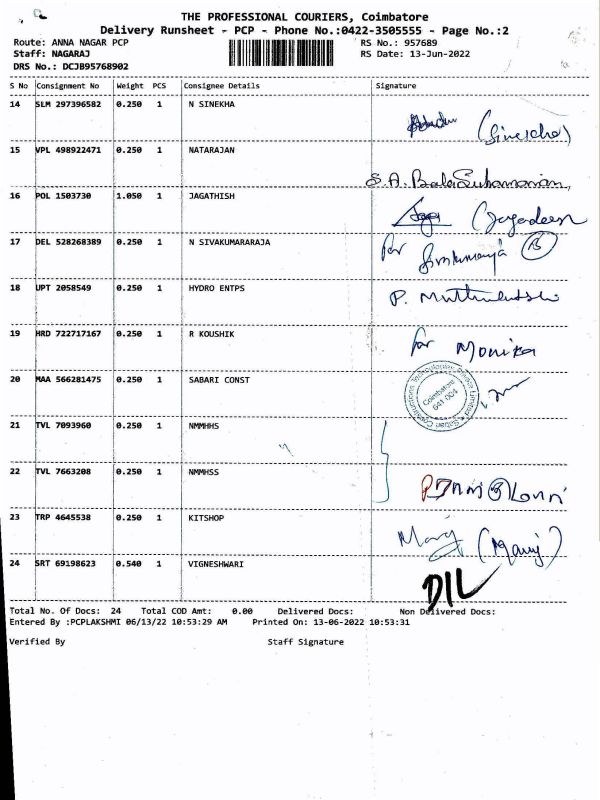 THE PROFESSIONAL COURIERS, Coimbatore
Delivery Runsheet - PCP - Phone No.:0422-3505555 - Page No.:2
Route: ANNA NAGAR PCP RS No.: 957689
Staff: NAGARAJ RS Date: 13-Jun-2022
DRS No.: DCJB95768902
S No Consignment No Weight PCS Consignee Details Signature
14 SLM 297396582 0.250 1 N SINEKHA
15 VPL 498922471 0.250 1 NATARAJAN
S.A. BalaSubramanian
16 POL 1503730 1.050 1 JAGATHISH
(Jagadeesn
17 DEL 528268389 0.250 1 N SIVAKUMARARAJA for
18 UPT 2058549 0.250 1 HYDRO ENTPS
19 HRD 722717167 0.250 1 R KOUSHIK for Monika
20 MAA 566281475 0.250 1 SABARI CONST
Coimbatore
641 004
21 TVL 7093960 0.250 1 NMMHHS
22 TVL 7663208 0.250 1 NMMHSS
23 TRP 4645538 0.250 1 KITSHOP
24 SRT 69198623 0.540 1 VIGNESHWARI
D/L
Total No. Of Docs: 24 Total COD Amt: 0.00 Delivered Docs: Non Delivered Docs:
Entered By :PCPLAKSHMI 06/13/22 10:53:29 AM Printed On: 13-06-2022 10:53:31
Verified By Staff Signature